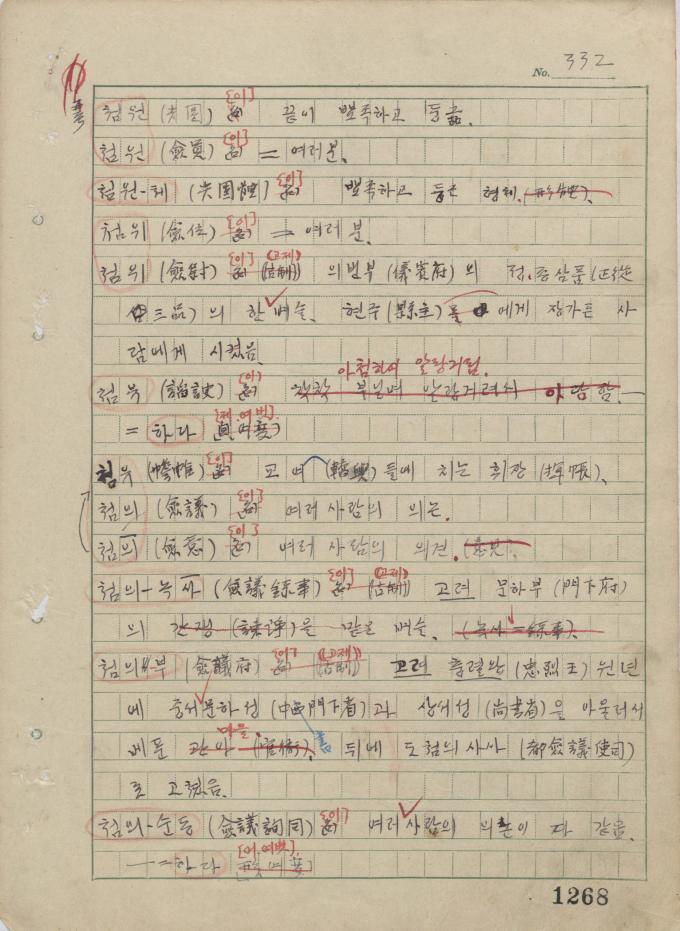 No. 332
첨원 (尖圓) [이] 끝이 뾰족하고 둥금.
첨원 (僉員) [이] = 여러분.
첨원-체 (尖圓體) [이] 뾰족하고 둥근 형체. (形體).
첨위 (僉位) [이] = 여러분.
첨위 (僉尉) [이] (고제) (古制) 의빈부 (儀賓府) 의 정, 종삼품 (正從
三品) 의 한 벼슬. 현주 (縣主) 에게 장가든 사
람에게 시켰음.
아첨하여 알랑거림.
첨유 (諂諛) [이] 아당함.
= 하다
첨유 (幨帷) [이] 교여 (轎輿) 들에 치는 휘장 (揮帳).
첨의 (僉議) [이] 여러 사람의 의논.
첨의 (僉意) [이] 여러 사람의 의견. (意見).
첨의-녹사 (僉議錄事) [이] (고제) (古制) 고려 문하부 (門下府)
의 간쟁 (諫諍) 을 맡은 벼슬. (녹사 = 錄事).
첨의부 (僉議府) [이] (고제) (古制) 고려 충렬왕 (忠烈王) 원년
에 중서문하성 (中書門下省) 과 상서성 (尙書省) 을 아울러서
마을.
베푼 관아 (官衙). 뒤에 도첨의사사 (都僉議使司)
로 고쳤음.
첨의-순동 (僉議詢同) [이] 여러 사람의 의논이 다 같음.
= 하다 [어, 여벗]
1268